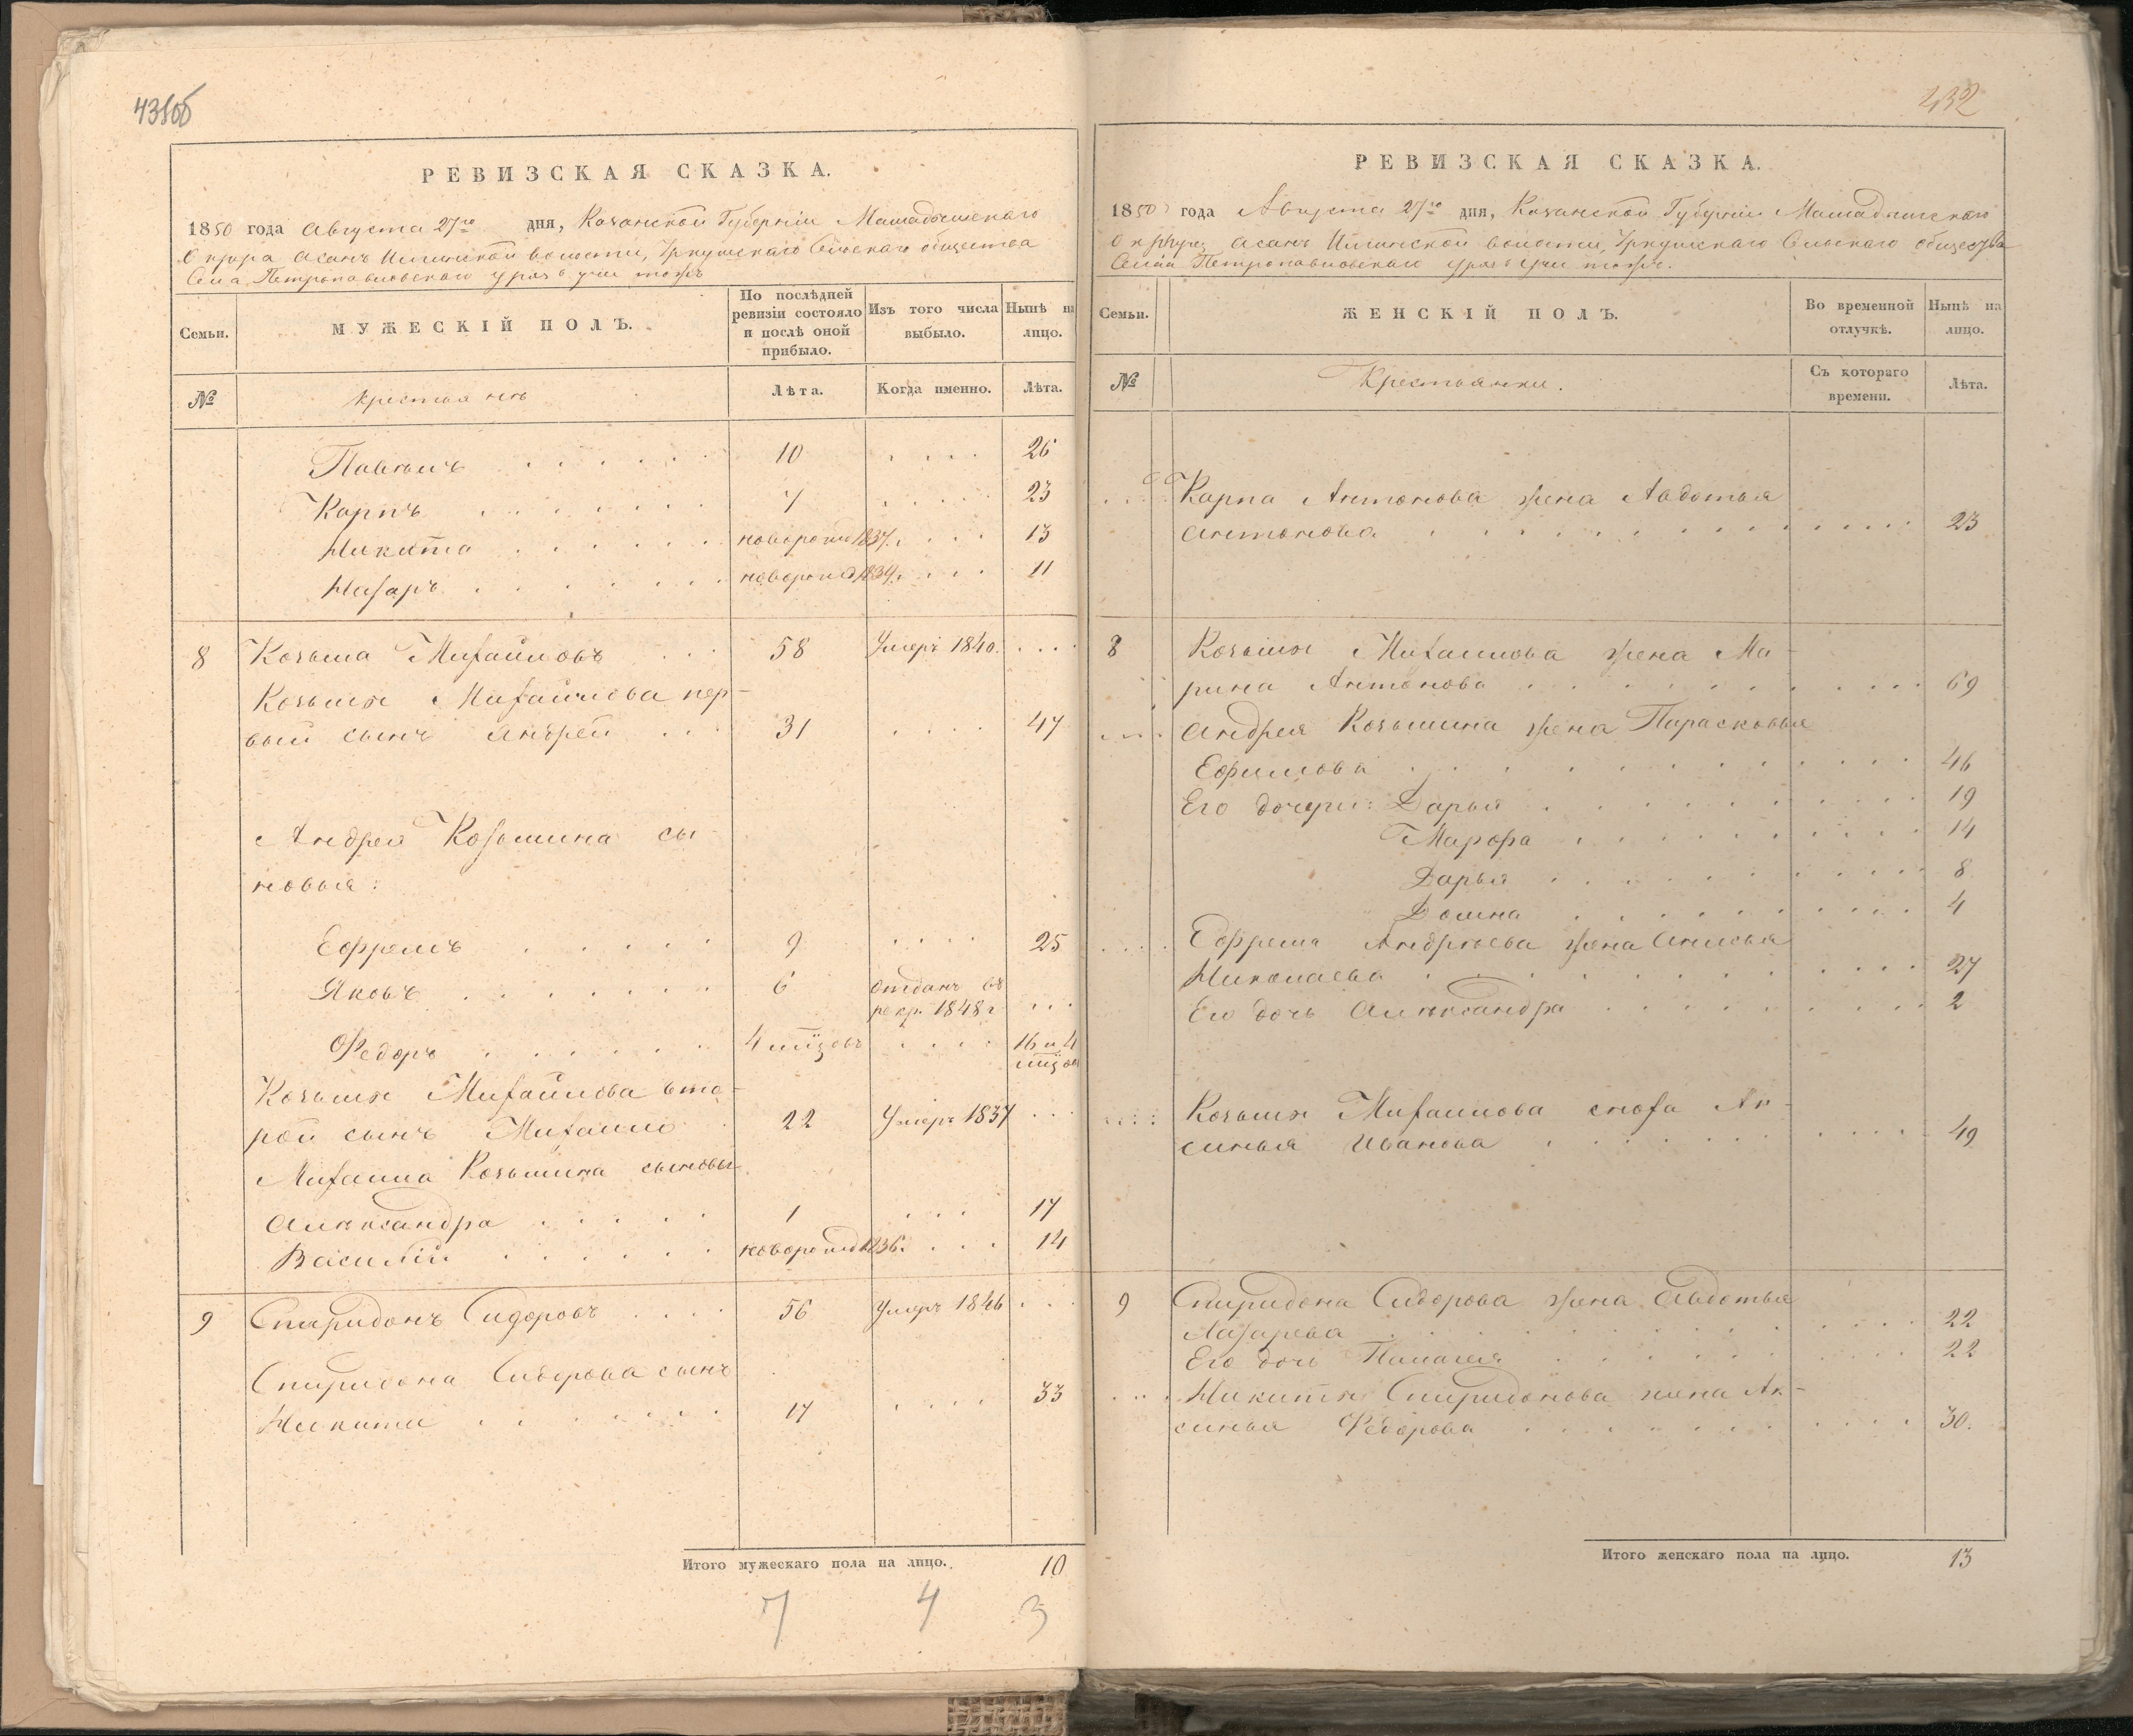 431об
РЕВИЗСКАЯ СКАЗКА.
1850 года Августа 27го дня, Казанской Губерніи Мамадышскаго
Округа Асанъ Илгинской волости, Уркушскаго Сельскаго общества
Села Петропавловскаго Урясь Учи тожъ
Семьи.
МУЖЕСКІЙ ПОЛЪ.
По послѣдней ревизіи состояло и послѣ оной прибыло.
Изъ того числа выбыло.
Нынѣ на лицо.
№
Крестьянъ
Лѣта.
Когда именно.
Лѣта.
Павелъ . . . . . . 10 . . . . 26
Карпъ . . . . . . 7 . . . . 23
Никита . . . . . . новорожд 1837. . . . 13
Назаръ . . . . . . новорожд 1839. . . . 11
8 Козьма Михайловъ . . . 58 Умеръ 1840. . . .
Козьмы Михайлова пер-
вый сынъ Андрей . . . 31 . . . . 47
Андрея Козьмина сы-
новья:
Ефремъ . . . . . 9 . . . . 25
Яковъ . . . . . . 6 отданъ въ
рекр. 1848 г . . .
Федоръ . . . . . . 4 мѣцовъ . . . . 16 и 4
мѣцов
Козьмы Михайлова вто-
рой сынъ Михайло 22 Умеръ 1837 . . .
Михаила Козьмина сыновья
Александра . . . . . 1 . . . 17
Василій . . . . . . новорожд 1836. . . . 14
9 Спиридонъ Сидоровъ . . . 56 Умеръ 1846 . . .
Спиридона Сидорова сынъ
Никита . . . . . . 17 . . . . 33
Итого мужескаго пола на лицо. 10
7 4 3
432
РЕВИЗСКАЯ СКАЗКА.
1850 года Августа 27го дня, Казанской Губерніи Мамадышскаго
Округа, Асанъ Илгинской волости, Уркушскаго Сельскаго общества
Села Петропавловскаго Урясь Учи тожъ.
Семьи.
ЖЕНСКІЙ ПОЛЪ.
Во временной отлучкѣ.
Нынѣ на лицо.
№
Крестьянки.
Съ котораго времени.
Лѣта.
. . . Карпа Антонова жена Авдотья
Антонова . . . . . . . . . . . . 23
8 Козьмы Михаилова жена Ма-
рина Антонова . . . . . . . . . . . 69
. . . . Андрея Козьмина жена Парасковья
Ефимова . . . . . . . . . . . 46
Его дочери: Дарья . . . . . . . . . . 19
Марфа . . . . . . . . . . 14
Дарья . . . . . . . . . . 8
Домна . . . . . . . . . . 4
. . . . Ефрема Андреева жена Анисья
Николаева . . . . . . . . . . . 27
Его дочь Александра . . . . . . . . . 2
. . . . Козьмы Михаилова сноха Ак-
синья Иванова . . . . . . . . . 49
9 Спиридона Сидорова жена Авдотья
Лазарева . . . . . . . . . . . 22
Его дочь Палагея . . . . . . . . 22
. . . Никиты Спиридонова жена Ак-
синья Федорова . . . . . . . . . 30.
Итого женскаго пола на лицо. 13